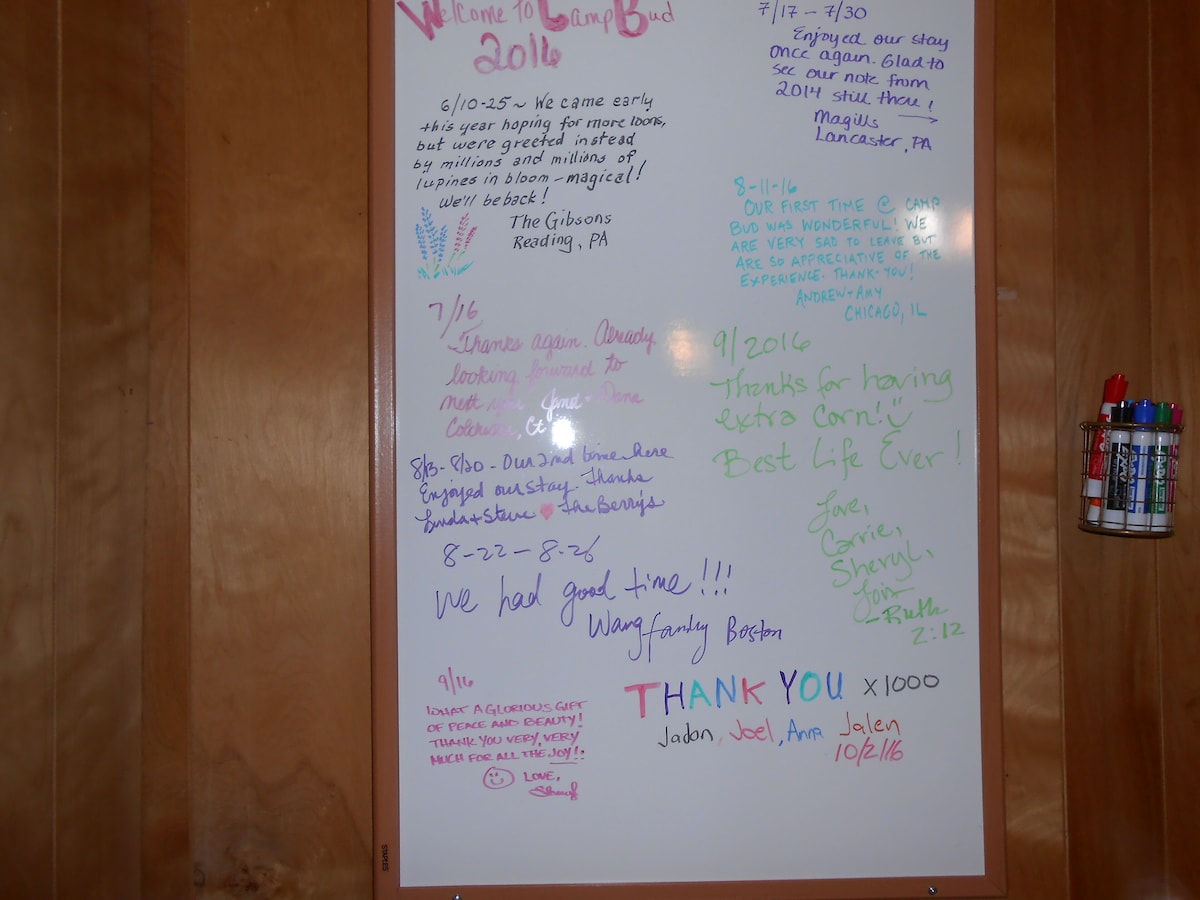 Welcome To Camp Bud
2016
6/10-25 ~ We came early
this year hoping for more loons,
but were greeted instead
by millions and millions of
lupines in bloom - magical!
We'll be back!
The Gibsons
Reading, PA
7/16
Thanks again. Already
looking forward to
next
Dana
Ct
8/13 - 8/20 - Our 2nd time here
Enjoyed our stay. Thanks
Linda + Steve The Berry's
8-22 - 8-26
We had good time!!!
Wang family Boston
9/16
WHAT A GLORIOUS GIFT
OF PEACE AND BEAUTY!
THANK YOU VERY, VERY
MUCH FOR ALL THE JOY!!
LOVE,
7/17 - 7/30
Enjoyed our stay
once again. Glad to
see our note from
2014 still there!
Magills
Lancaster, PA
8-11-16
OUR FIRST TIME @ CAMP
BUD WAS WONDERFUL! WE
ARE VERY SAD TO LEAVE BUT
ARE SO APPRECIATIVE OF THE
EXPERIENCE. THANK-YOU!
ANDREW + AMY
CHICAGO, IL
9/2016
Thanks for having
extra corn!
Best Life Ever!
Love,
Carrie,
Sheryl,
- Ruth
2:12
THANK YOU x1000
Jadon, Joel, Anna Jalen
10/2/16
STAPLES
EXPO